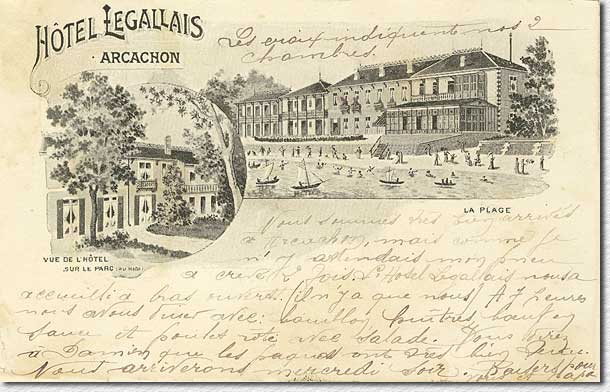 HÔTEL LEGALLAIS
ARCACHON
Les croix indiquent nos 2
chambres.
LA PLAGE
VUE DE L'HÔTEL
SUR LE PARC (AU MIDI)
Nous sommes très bien arrivés
à Arcachon, mais comme je
m'y attendais mon pneu
a crevé 2 fois. L'Hotel Legallais nous a
accueilli à bras ouverts (il n'y a que nous) A 7 heures
nous avons diner avec: bouillon, huitres, bœuf en
sauce et poulet roti avec salade. Vous direz
à Damien que les paquets ont très bien tenu.
Nous arriverons mercredi soir. Baisers pour
vous et papa